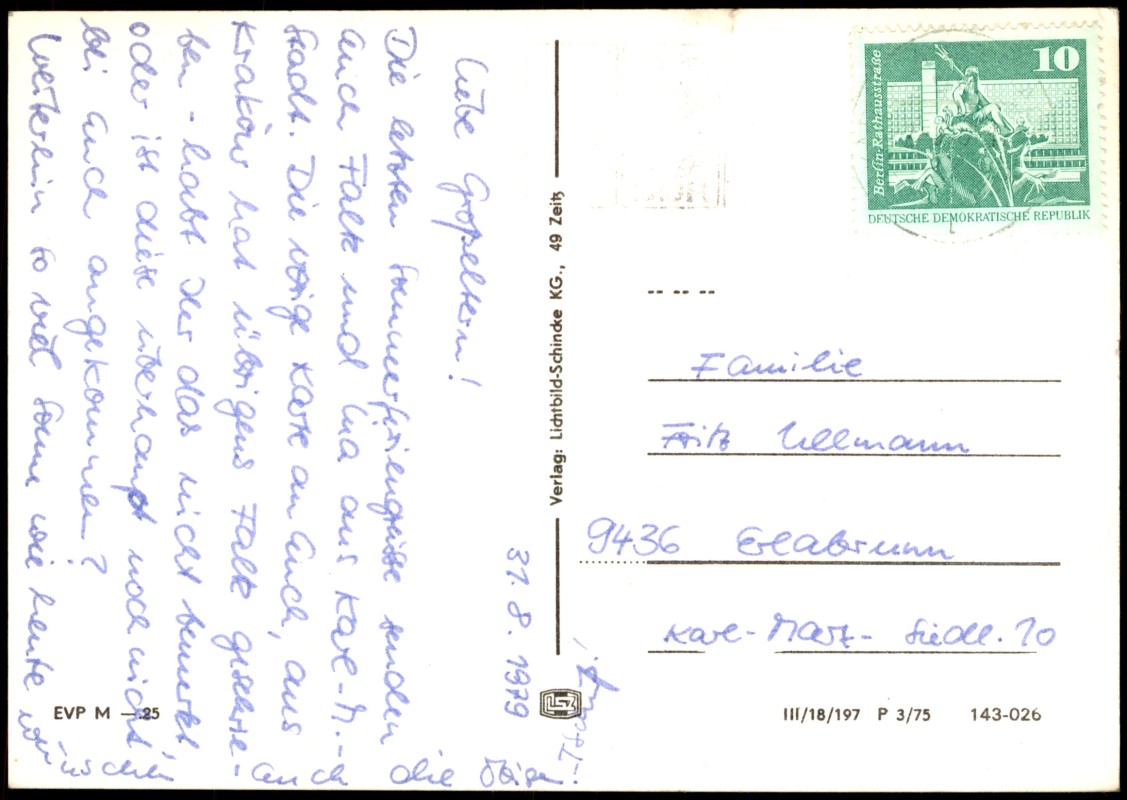 31. 8. 1979
Liebe Großeltern!
Die letzten Sommerferiengrüße senden
Euch Falk und Ina aus Karl-M.-
Stadt. Die vorige Karte an Euch, aus
Kraków hat übrigens Falk geschrie-
ben - habt Ihr das nicht bemerkt
oder ist diese überhaupt noch nicht
bei Euch angekommen?
Weiterhin so viel Sonne wie heute
wünschen
Euch die
EVP M —.25
Verlag: Lichtbild-Schincke KG., 49 Zeitz
10
Berlin-Rathausstraße
DEUTSCHE DEMOKRATISCHE REPUBLIK
Familie
Fritz Ullmann
9436 Erlabrunn
Karl-Marx-Siedl. 10
III/18/197 P 3/75 143-026